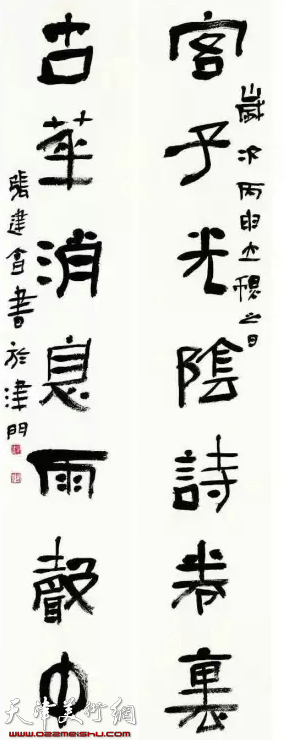 歲次丙申立穐之日
客子光陰詩卷裏
杏華消息雨聲中
張建會書於津門
天津美術網
www.022meishu.com